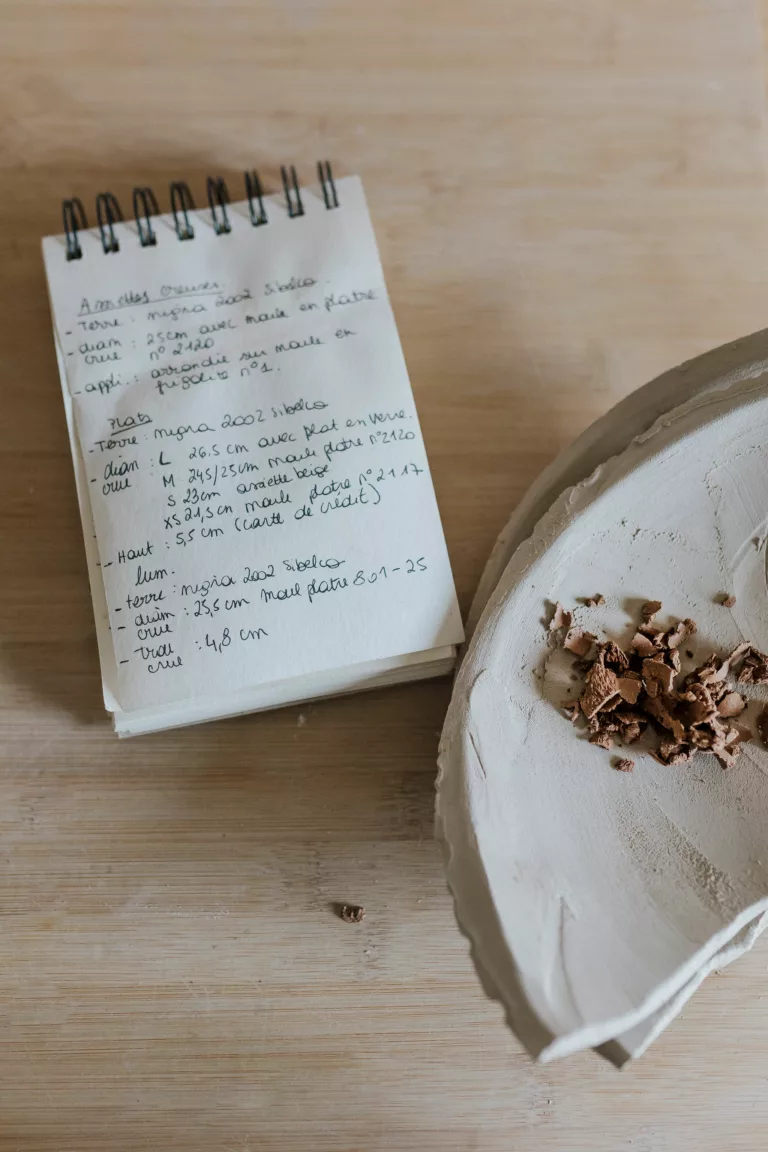 Assiettes creuses.
- Terre : nigra 2002 Sibelco.
- diam : 25cm avec moule en platre
crue n° 2120
- appli. : arrondie sur moule en
frigolite n°1.
Plats
- Terre : nigra 2002 Sibelco
- diam : L 26.5 cm avec plat en verre.
crue M 24,5/25cm moule platre n°2120
S 23cm assiette beige
XS 21,5cm moule platre n°2117
- Haut : 5,5 cm (carte de crédit)
lum.
- terre : nigra 2002 Sibelco
- diam : 25,5 cm moul platre 801-25
crue
- trou : 4,8 cm
crue